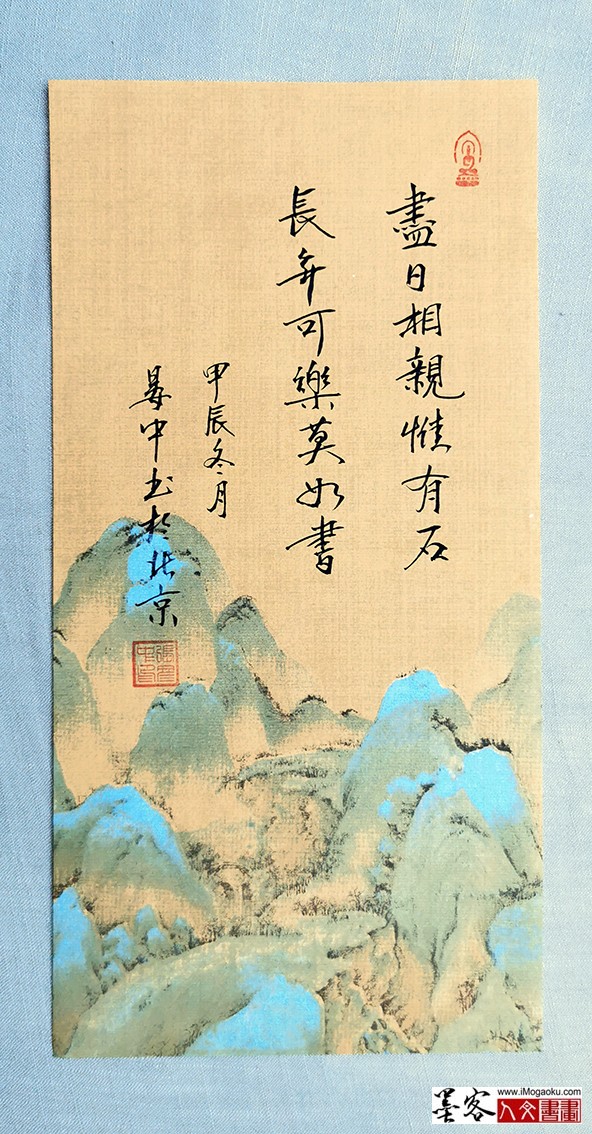 盡日相親惟有石
長年可樂莫如書
甲辰冬月
晏中书於北京
墨客
www.iMogaoku.com
人文書畫